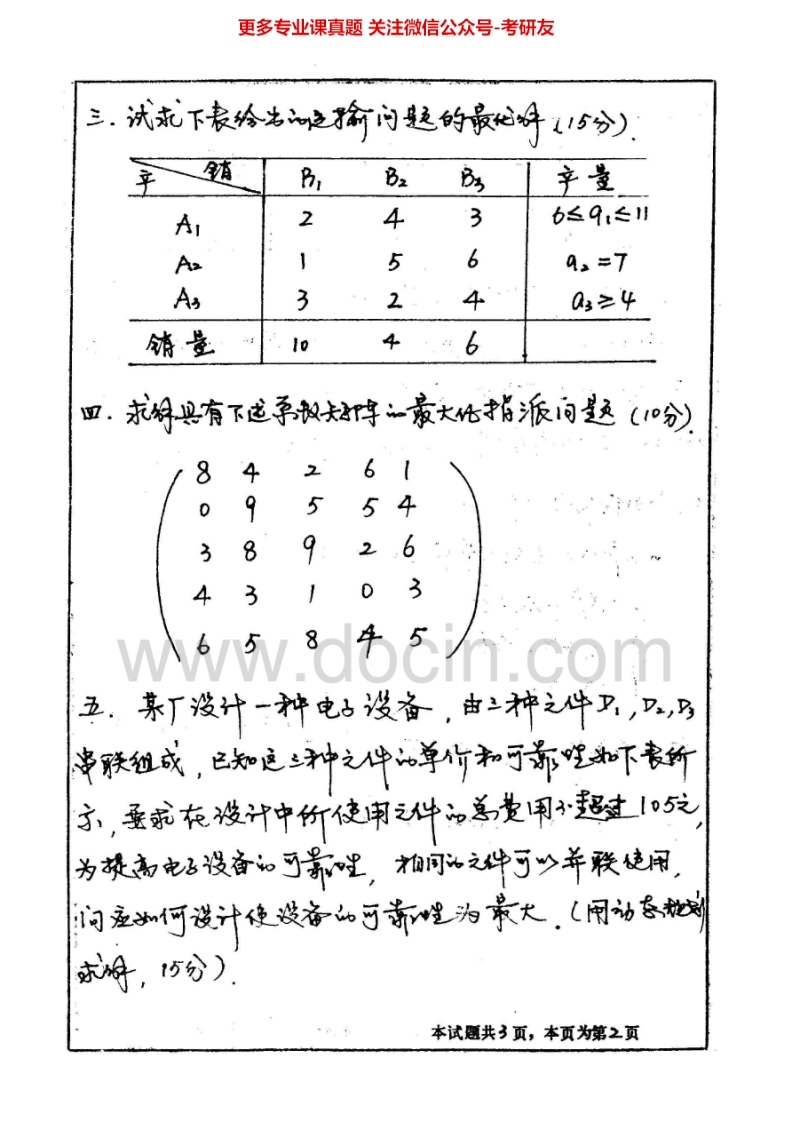 更多专业课真题 关注微信公众号-考研友
三. 试求下表给出的运输问题的最优解 (15分).
产 销 B₁ B₂ B₃ 产量
A₁ 2 4 3 6≤a₁≤11
A₂ 1 5 6 a₂=7
A₃ 3 2 4 a₃≥4
销量 10 4 6
四. 求解具有下述系数矩阵的最大化指派问题 (10分).
8 4 2 6 1
0 9 5 5 4
3 8 9 2 6
4 3 1 0 3
6 5 8 4 5
www.docin.com
五. 某厂设计一种电子设备, 由三种元件D₁,D₂,D₃
串联组成, 已知这三种元件的单价和可靠性如下表所
示, 要求在设计中所使用元件的总费用不超过105元,
为提高电子设备的可靠性, 相同的元件可以并联使用,
问应如何设计使设备的可靠性为最大. (用动态规划
求解, 15分).
本试题共3页，本页为第2页